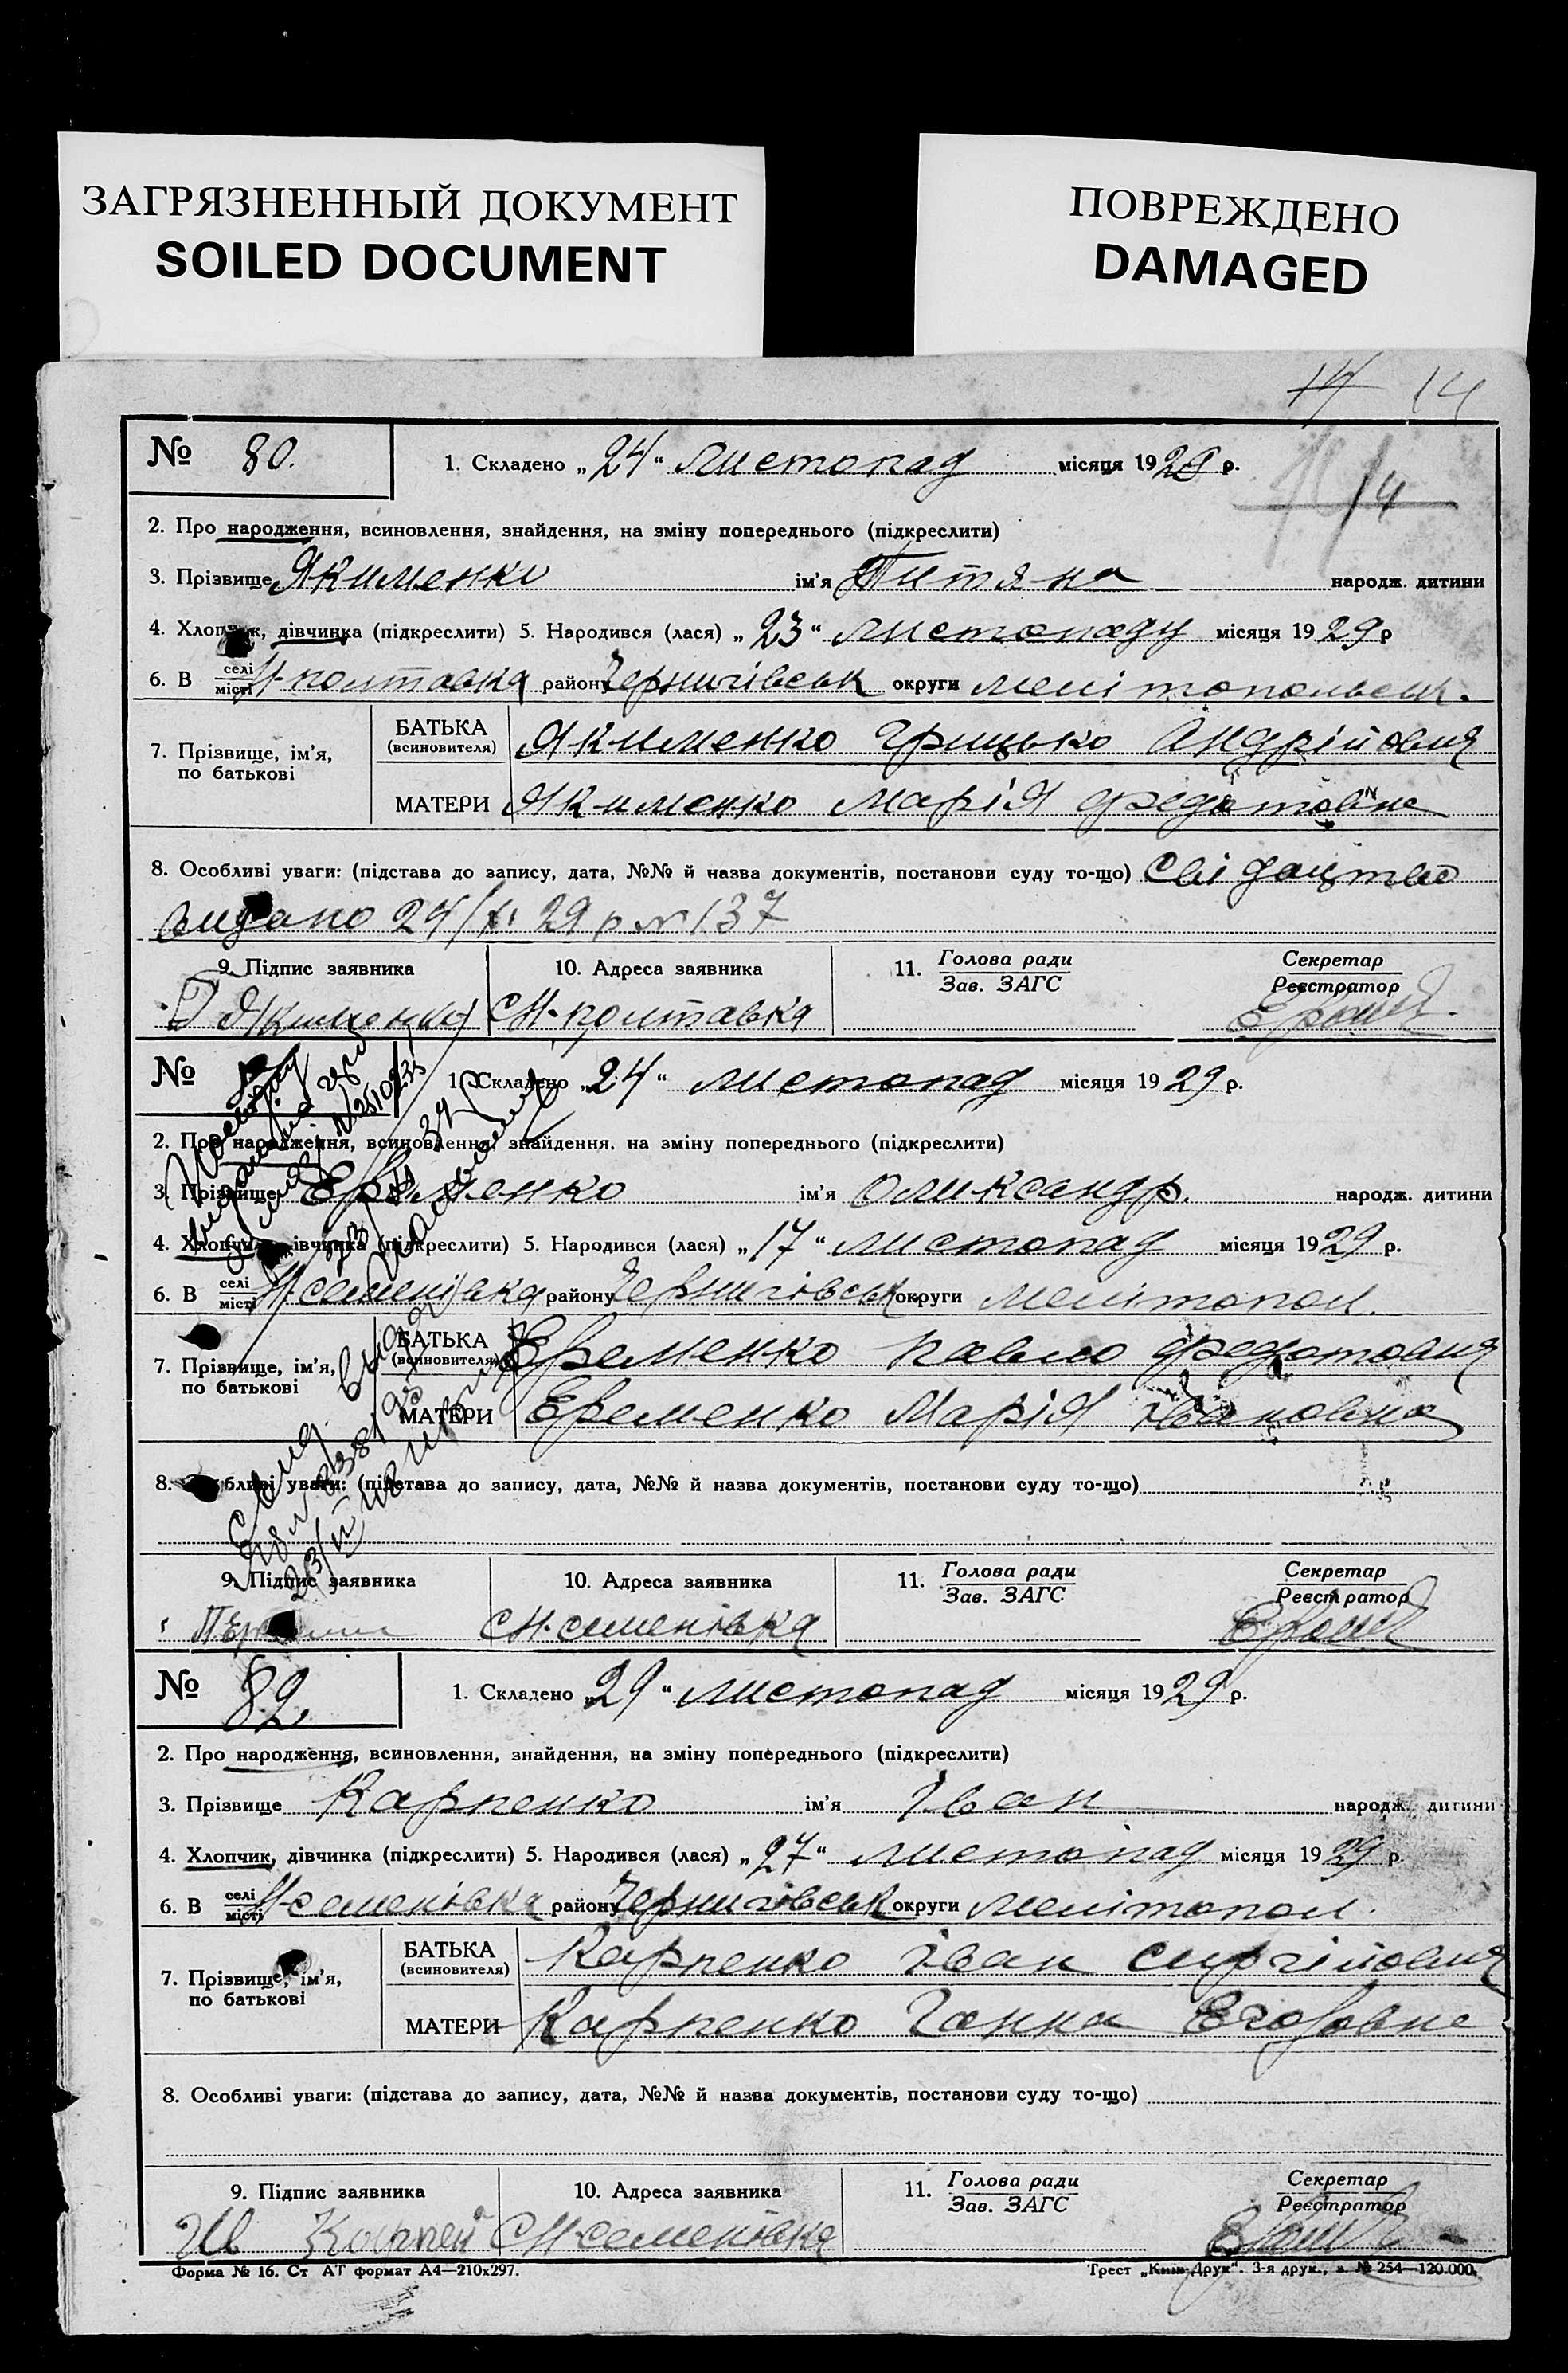 ЗАГРЯЗНЕННЫЙ ДОКУМЕНТ
SOILED DOCUMENT
ПОВРЕЖДЕНО
DAMAGED
14
14
№ 80.
1. Складено „24“ листопад місяця 1929 р.
2. Про народження, всиновлення, знайдення, на зміну попереднього (підкреслити)
3. Прізвище Якименко ім'я Титяна народж. дитини
4. Хлопчик, дівчинка (підкреслити) 5. Народився (лася) „23“ листопаду місяця 1929 р
6. В селі/місті Н-полтавка район Чернигівськ округи мелітопольськ.
7. Прізвище, ім'я, по батькові
БАТЬКА (всиновителя) Якименко Грицько Андрійовия
МАТЕРИ Якименко Марія Федотовна
8. Особливі уваги: (підстава до запису, дата, №№ й назва документів, постанови суду то-що) Свідоцтво
видано 24/ 29 р № 137
9. Підпис заявника
10. Адреса заявника
11. Голова ради
Зав. ЗАГС
Секретар
Реєстратор
Г Якименко
с Н-полтавка
№
1. Складено „24“ листопад місяця 1929 р.
2. Про народження, всиновлення, знайдення, на зміну попереднього (підкреслити)
3. Прізвище Еременко ім'я Олександр. народж. дитини
4. Хлопчик, дівчинка (підкреслити) 5. Народився (лася) „17“ листопад місяця 1929 р.
6. В селі/місті Н. семенівка району Чернигівськ округи мелітопол.
7. Прізвище, ім'я, по батькові
БАТЬКА (всиновителя) Еременко павло федотовия
МАТЕРИ Еременко Марія івановна
8. Особливі уваги: (підстава до запису, дата, №№ й назва документів, постанови суду то-що)
9. Підпис заявника
10. Адреса заявника
11. Голова ради
Зав. ЗАГС
Секретар
Реєстратор
с Н-семенівка
№ 82
1. Складено „29“ листопад місяця 1929 р.
2. Про народження, всиновлення, знайдення, на зміну попереднього (підкреслити)
3. Прізвище Карпенко ім'я Іван народж. дитини
4. Хлопчик, дівчинка (підкреслити) 5. Народився (лася) „27“ листопад місяця 1929 р.
6. В селі/місті Н-семенівка району Чернигівськ округи мелітопол.
7. Прізвище, ім'я, по батькові
БАТЬКА (всиновителя) Карпенко іван сиргійовия
МАТЕРИ Карпенко Ганна Егоровне
8. Особливі уваги: (підстава до запису, дата, №№ й назва документів, постанови суду то-що)
9. Підпис заявника
10. Адреса заявника
11. Голова ради
Зав. ЗАГС
Секретар
Реєстратор
Ив Карпен
с Н-семенівка
Форма № 16. Ст АТ формат А4—210х297.
Трест „Київ-Друк“. 3-я друк., з. № 254—120.000.